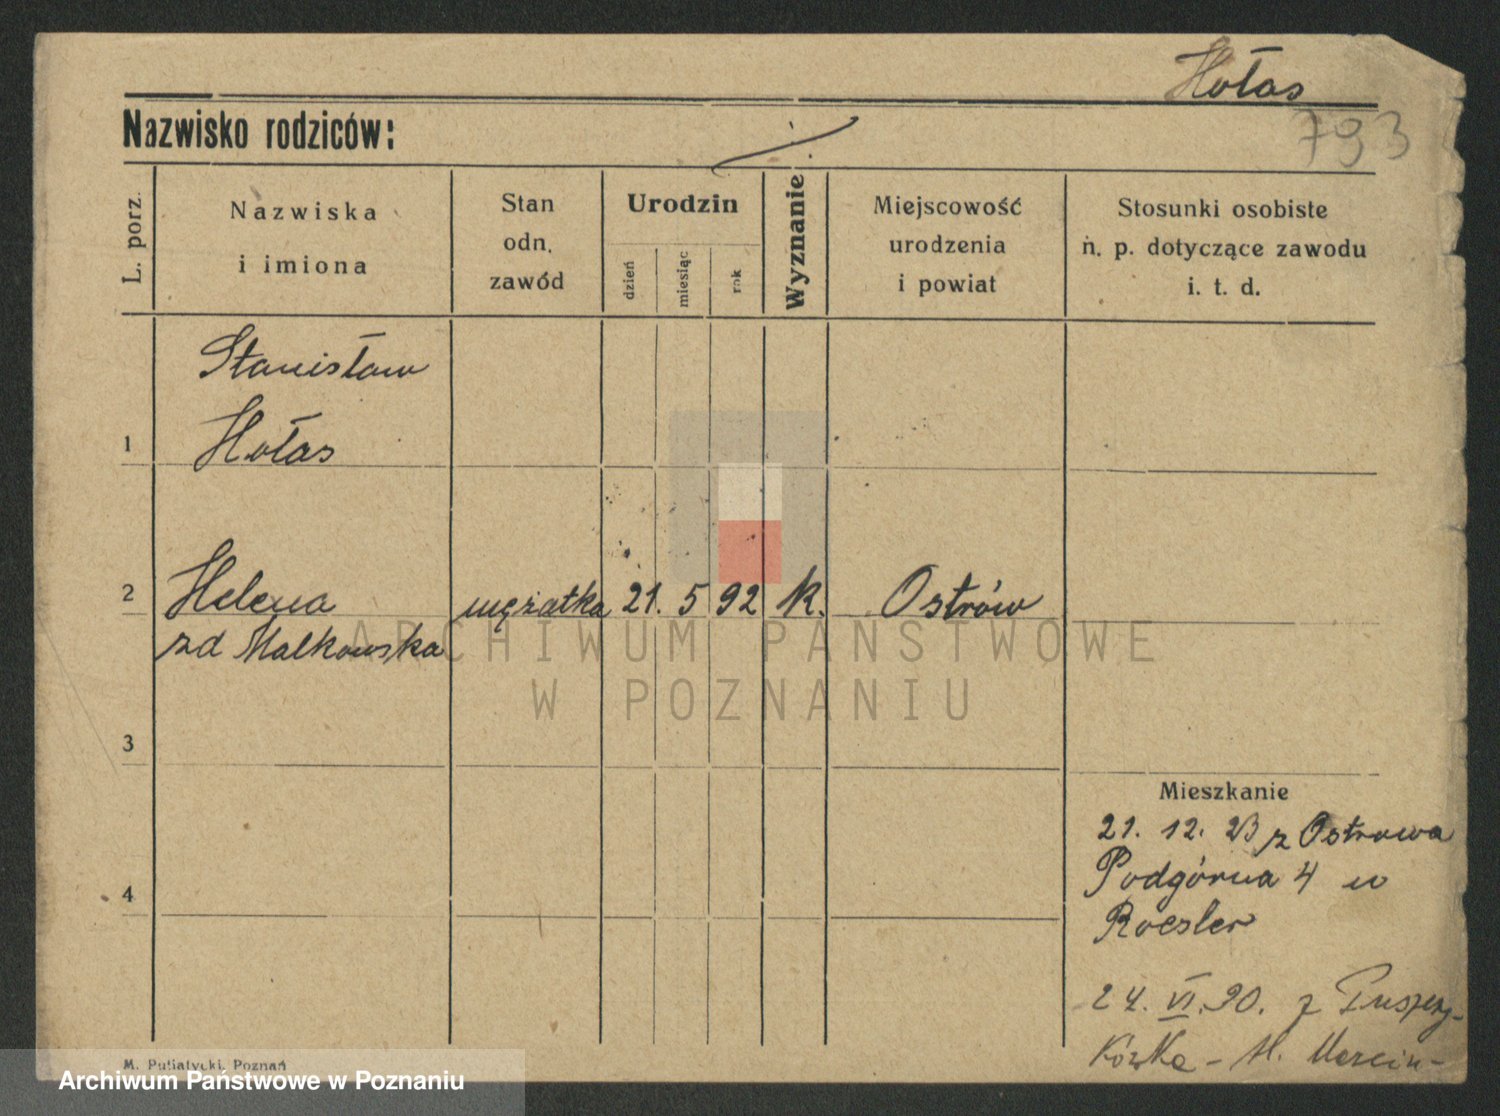 Hołas
793
Nazwisko rodziców:
L. porz.
Nazwiska
i imiona
Stan
odn.
zawód
Urodzin
dzień
miesiąc
rok
Wyznanie
Miejscowość
urodzenia
i powiat
Stosunki osobiste
n. p. dotyczące zawodu
i. t. d.
Stanisław
1 Hołas
2 Helena mężatka 21. 5 92 k. Ostrów
zd Malkowska
ARCHIWUM PAŃSTWOWE
W POZNANIU
3
Mieszkanie
21. 12. 23 z Ostrowa
4 Podgórna 4 u
Roesler
24. VI. 30. z
M. Putiatycki, Poznań
Archiwum Państwowe w Poznaniu